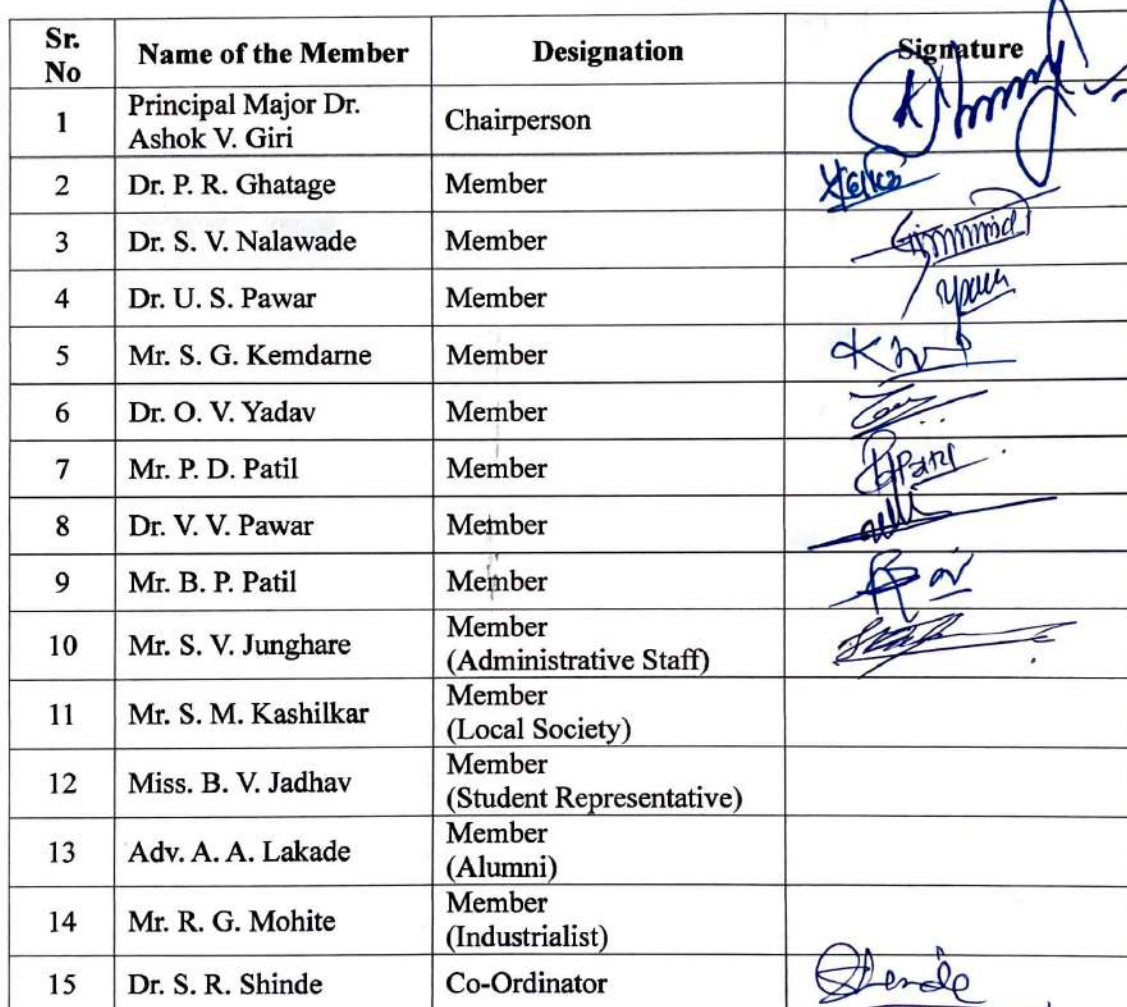 Sr. No Name of the Member Designation Signature
1 Principal Major Dr. Ashok V. Giri Chairperson
2 Dr. P. R. Ghatage Member
3 Dr. S. V. Nalawade Member
4 Dr. U. S. Pawar Member
5 Mr. S. G. Kemdarne Member
6 Dr. O. V. Yadav Member
7 Mr. P. D. Patil Member
8 Dr. V. V. Pawar Member
9 Mr. B. P. Patil Member
10 Mr. S. V. Junghare Member (Administrative Staff)
11 Mr. S. M. Kashilkar Member (Local Society)
12 Miss. B. V. Jadhav Member (Student Representative)
13 Adv. A. A. Lakade Member (Alumni)
14 Mr. R. G. Mohite Member (Industrialist)
15 Dr. S. R. Shinde Co-Ordinator